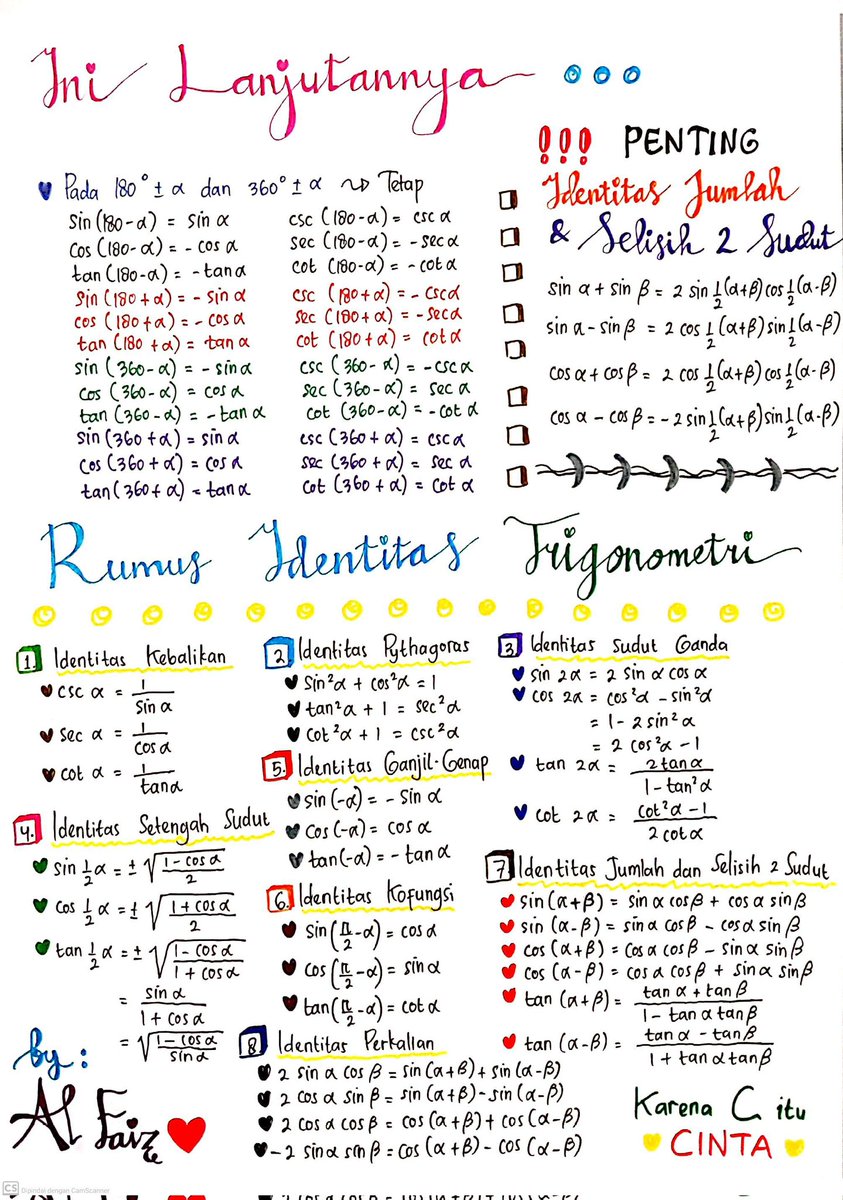 Ini Lanjutannya
Pada 180° ± α dan 360° ± α ⤳ Tetap
sin (180-α) = sin α
cos (180-α) = - cos α
tan (180-α) = - tan α
sin (180+α) = - sin α
cos (180+α) = - cos α
tan (180+α) = tan α
sin (360-α) = - sin α
cos (360-α) = cos α
tan (360-α) = - tan α
sin (360+α) = sin α
cos (360+α) = cos α
tan (360+α) = tan α
csc (180-α) = csc α
sec (180-α) = - sec α
cot (180-α) = - cot α
csc (180+α) = - csc α
sec (180+α) = - sec α
cot (180+α) = cot α
csc (360-α) = - csc α
sec (360-α) = sec α
cot (360-α) = - cot α
csc (360+α) = csc α
sec (360+α) = sec α
cot (360+α) = cot α
!!! PENTING
Identitas Jumlah
& Selisih 2 Sudut
sin α + sin β = 2 sin 1/2 (α+β) cos 1/2 (α-β)
sin α - sin β = 2 cos 1/2 (α+β) sin 1/2 (α-β)
cos α + cos β = 2 cos 1/2 (α+β) cos 1/2 (α-β)
cos α - cos β = - 2 sin 1/2 (α+β) sin 1/2 (α-β)
Rumus Identitas Trigonometri
1. Identitas Kebalikan
csc α = 1 / sin α
sec α = 1 / cos α
cot α = 1 / tan α
2. Identitas Pythagoras
sin²α + cos²α = 1
tan²α + 1 = sec²α
cot²α + 1 = csc²α
3. Identitas Sudut Ganda
sin 2α = 2 sin α cos α
cos 2α = cos²α - sin²α
= 1 - 2 sin²α
= 2 cos²α - 1
tan 2α = 2 tan α / 1 - tan²α
cot 2α = cot²α - 1 / 2 cot α
4. Identitas Setengah Sudut
sin 1/2 α = ± √(1 - cos α / 2)
cos 1/2 α = ± √(1 + cos α / 2)
tan 1/2 α = ± √(1 - cos α / 1 + cos α)
= sin α / 1 + cos α
= √(1 - cos α / sin α)
5. Identitas Ganjil-Genap
sin (-α) = - sin α
cos (-α) = cos α
tan (-α) = - tan α
6. Identitas Kofungsi
sin (π/2 - α) = cos α
cos (π/2 - α) = sin α
tan (π/2 - α) = cot α
7 Identitas Jumlah dan Selisih 2 Sudut
sin (α+β) = sin α cos β + cos α sin β
sin (α-β) = sin α cos β - cos α sin β
cos (α+β) = cos α cos β - sin α sin β
cos (α-β) = cos α cos β + sin α sin β
tan (α+β) = tan α + tan β / 1 - tan α tan β
tan (α-β) = tan α - tan β / 1 + tan α tan β
8 Identitas Perkalian
2 sin α cos β = sin (α+β) + sin (α-β)
2 cos α sin β = sin (α+β) - sin (α-β)
2 cos α cos β = cos (α+β) + cos (α-β)
- 2 sin α sin β = cos (α+β) - cos (α-β)
by :
Al Faiz
Karena C itu
CINTA
CS Dipindai dengan CamScanner